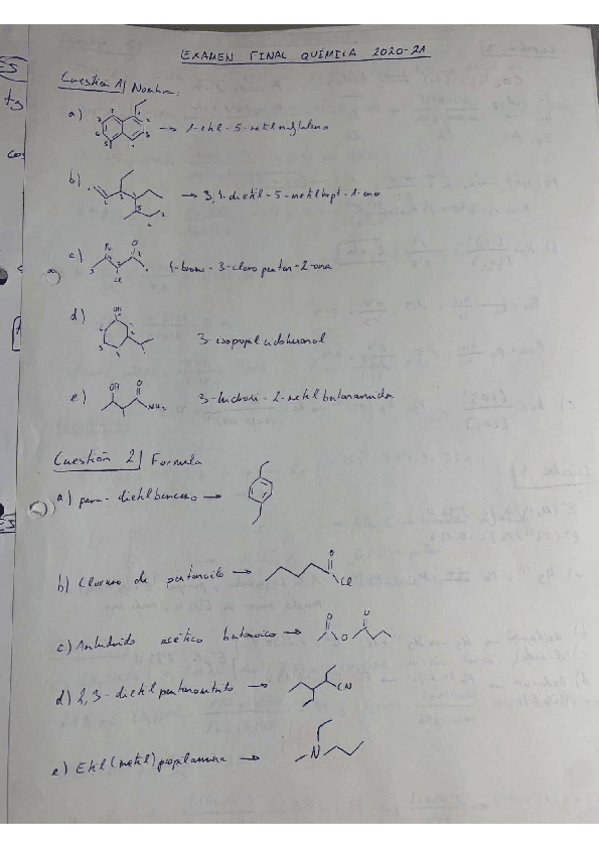 EXAMEN FINAL QUÍMICA 2020-21
Cuestión 1) Nombra:
a) → 1-etil-5-metilnaftaleno
b) → 3,4-dietil-5-metilhept-1-eno
c) Br O Cl 4-bromo-3-cloropentan-2-ona
d) OH 3-isopropilciclohexanol
e) OH O NH2 3-hidroxi-2-metilbutanamida
Cuestión 2) Formula
a) para-dietilbenceno →
b) Cloruro de pentanoilo → O Cl
c) Anhídrido acético butanoico → O O O
d) 2,3-dietilpentanonitrilo → CN
e) Etil(metil)propilamina → N